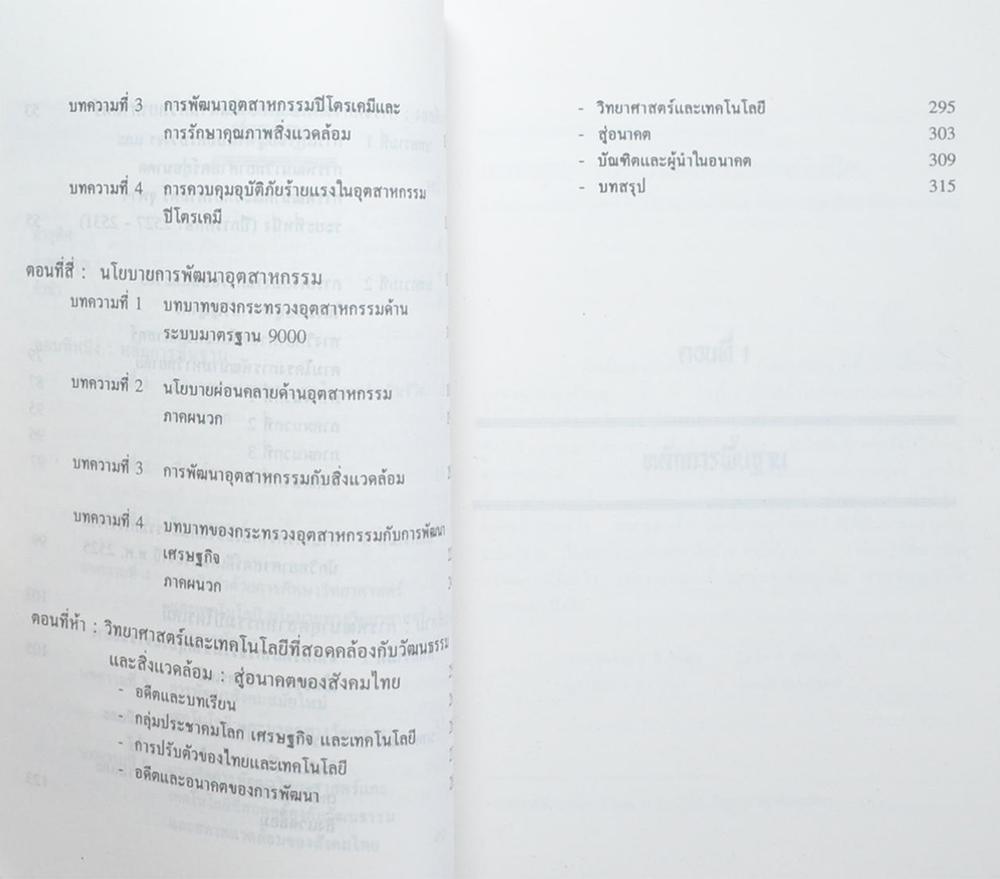 บทความที่ 3 การพัฒนาอุตสาหกรรมปิโตรเคมีและ
การรักษาคุณภาพสิ่งแวดล้อม
บทความที่ 4 การควบคุมอุบัติภัยร้ายแรงในอุตสาหกรรม
ปิโตรเคมี
ตอนที่สี่ : นโยบายการพัฒนาอุตสาหกรรม
บทความที่ 1 บทบาทของกระทรวงอุตสาหกรรมด้าน
ระบบมาตรฐาน 9000
บทความที่ 2 นโยบายผ่อนคลายด้านอุตสาหกรรม
ภาคผนวก
บทความที่ 3 การพัฒนาอุตสาหกรรมกับสิ่งแวดล้อม
บทความที่ 4 บทบาทของกระทรวงอุตสาหกรรมกับการพัฒนา
เศรษฐกิจ
ภาคผนวก
ตอนที่ห้า : วิทยาศาสตร์และเทคโนโลยีที่สอดคล้องกับวัฒนธรรม
และสิ่งแวดล้อม : สู่อนาคตของสังคมไทย
- อดีตและบทเรียน
- กลุ่มประชาคมโลก เศรษฐกิจ และเทคโนโลยี
- การปรับตัวของไทยและเทคโนโลยี
- อดีตและอนาคตของการพัฒนา
- วิทยาศาสตร์และเทคโนโลยี 295
- สู่อนาคต 303
- บัณฑิตและผู้นำในอนาคต 309
- บทสรุป 315